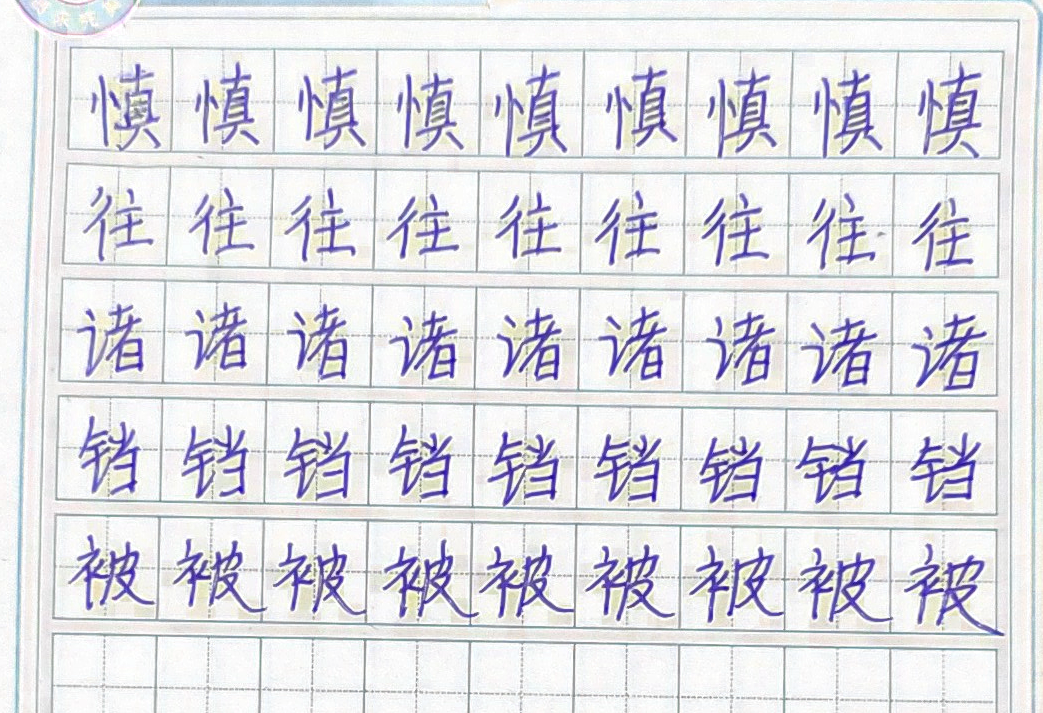 慎慎慎慎慎慎慎慎慎
往往往往往往往往往
诸诸诸诸诸诸诸诸诸
铛铛铛铛铛铛铛铛铛
被被被被被被被被被